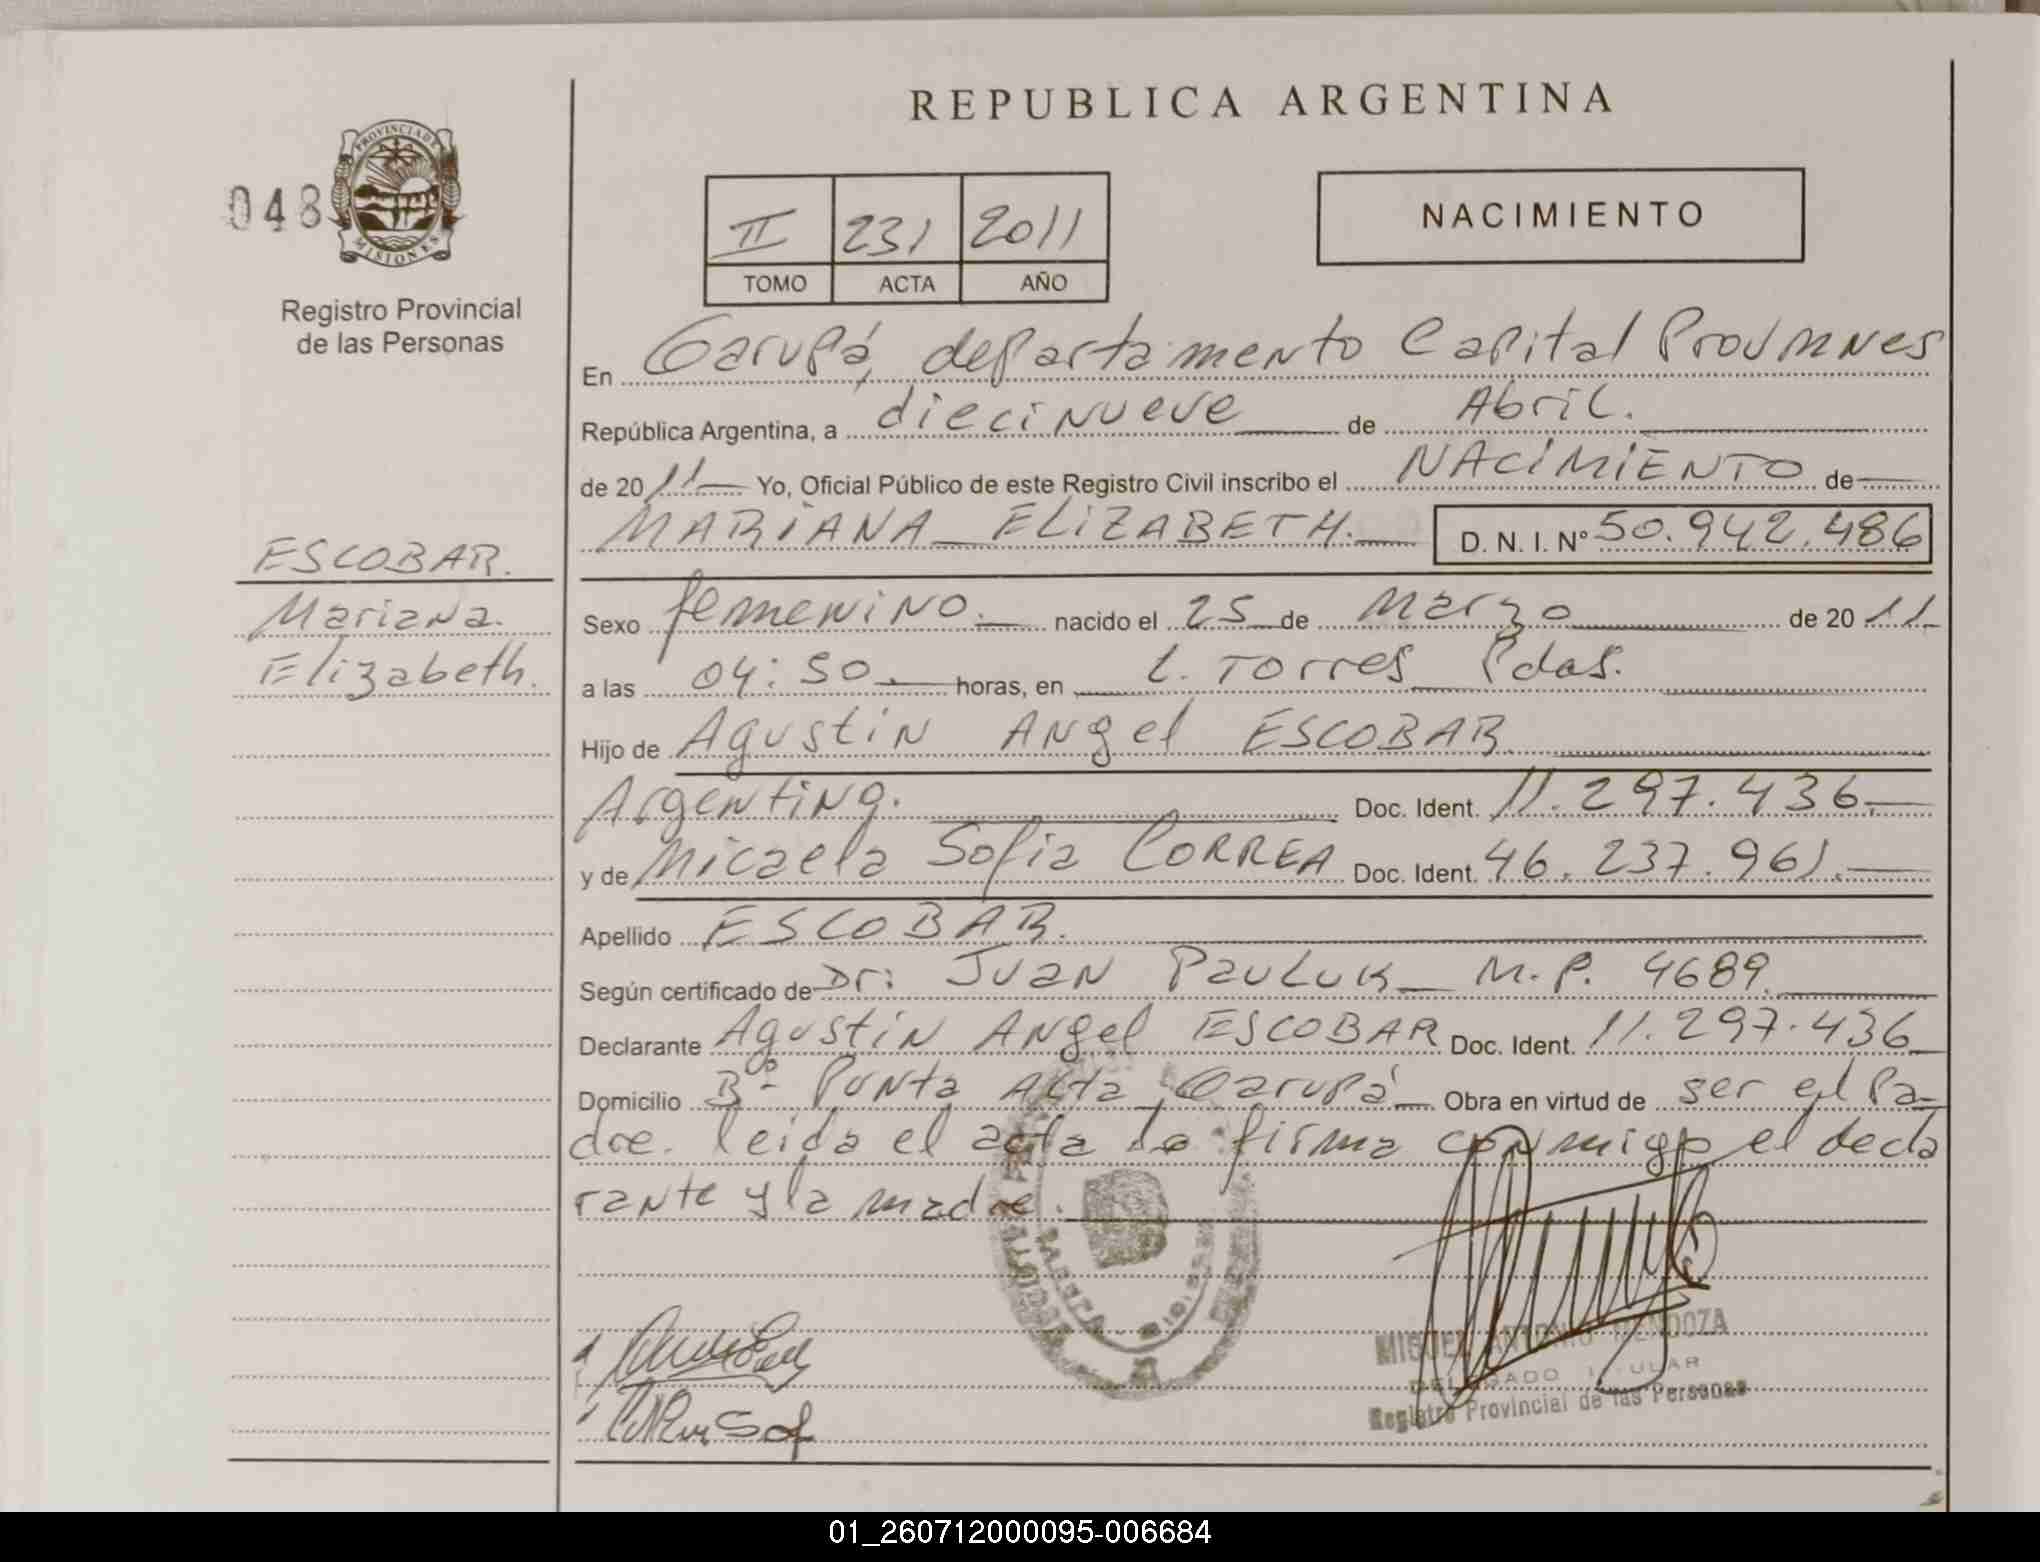 REPUBLICA ARGENTINA
PROVINCIA DE
MISIONES
048
Registro Provincial
de las Personas
II 231 2011
TOMO ACTA AÑO
NACIMIENTO
En Garupá, departamento Capital
República Argentina, a diecinueve de Abril.
de 2011 Yo, Oficial Público de este Registro Civil inscribo el NACIMIENTO de
MARIANA ELIZABETH. D. N. I. N° 50.942.486
ESCOBAR.
Mariana.
Elizabeth.
Sexo femenino. nacido el 25 de Marzo de 2011
a las 04:50 horas, en L. Torres Pdas.
Hijo de Agustin Angel ESCOBAR
Argentina. Doc. Ident. 11.297.436.
y de Micaela Sofia CORREA Doc. Ident. 46.237.961.
Apellido ESCOBAR.
Según certificado de Dr: Juan Pauluk M.P. 4689.
Declarante Agustin Angel ESCOBAR Doc. Ident. 11.297.436
Domicilio Bº Punta Alta Garupá Obra en virtud de ser el Pa-
dre. leida el acta la firma conmigo el decla
rante y la madre.
MIGUEL ANTONIO MENDOZA
DELEGADO TITULAR
Registro Provincial de las Personas
01_260712000095-006684